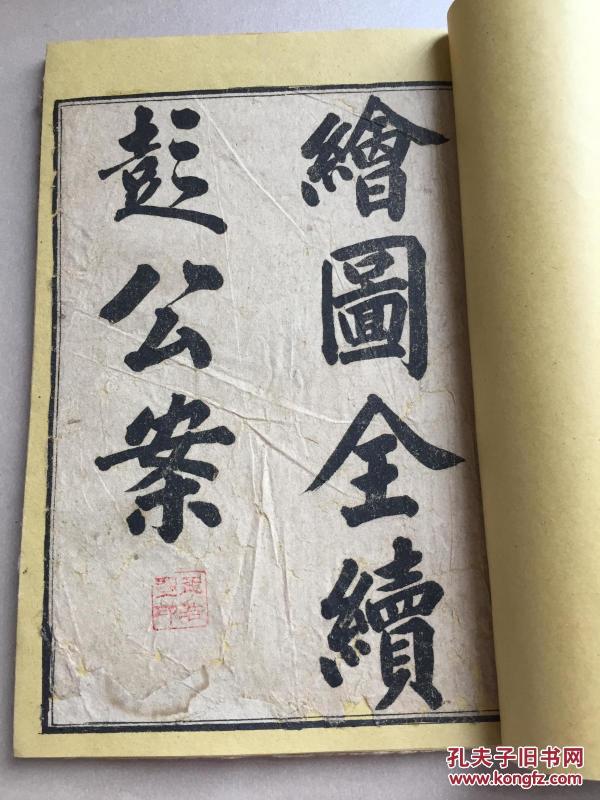 繪圖全續
彭公案
孔夫子旧书网
www.kongfz.com